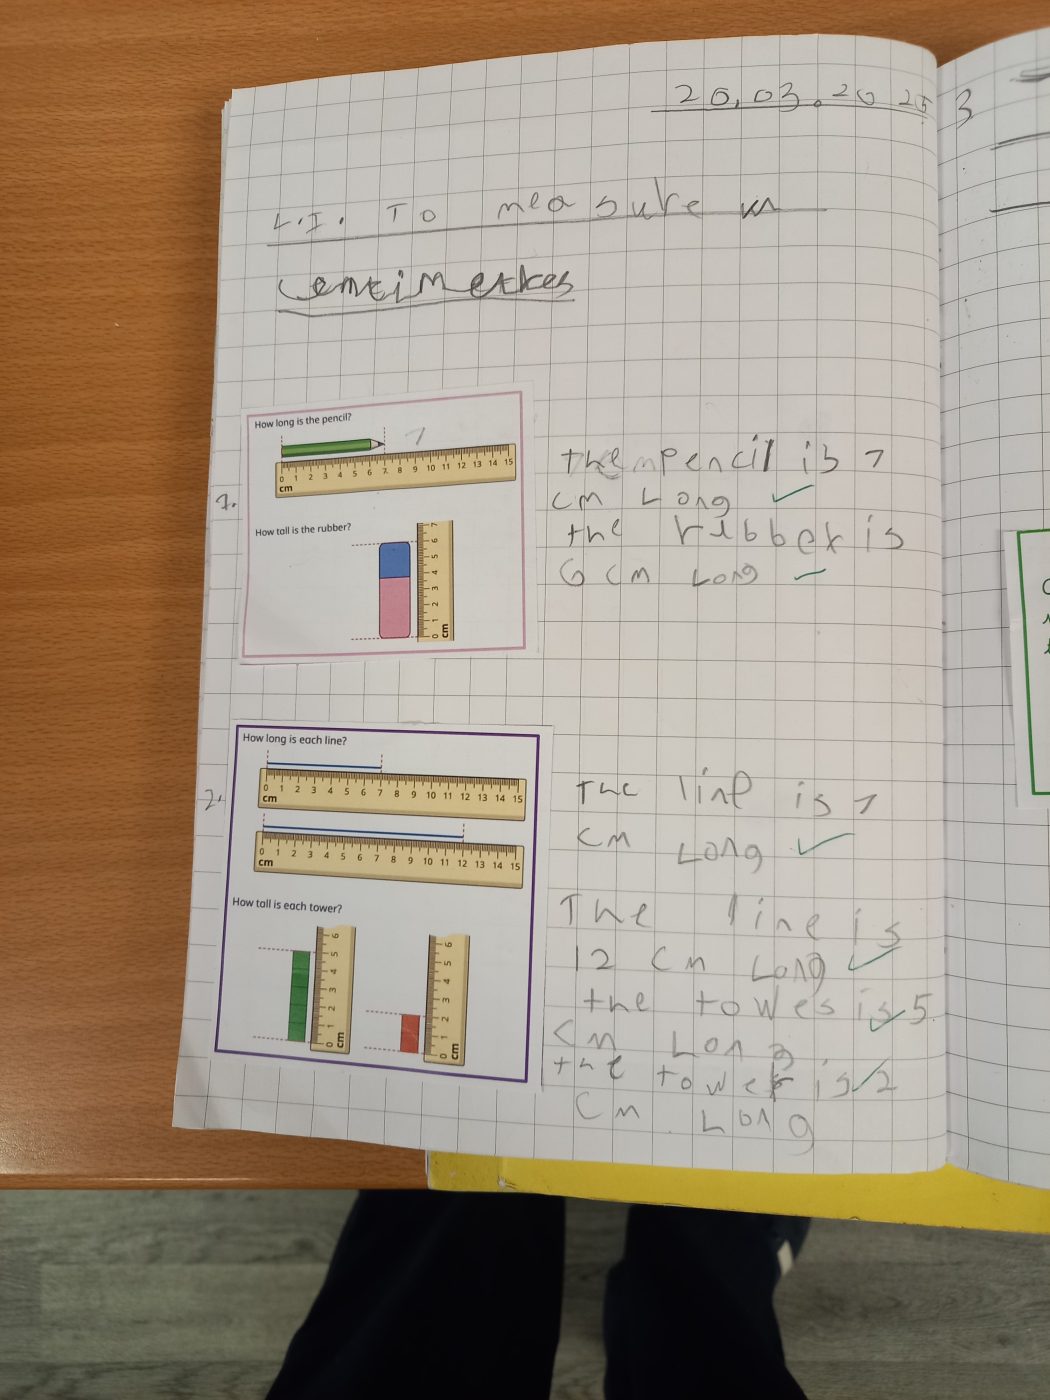 20.03.2025
L.I. To measure in
centimetres
How long is the pencil?
7
0 1 2 3 4 5 6 7 8 9 10 11 12 13 14 15
cm
1.
How tall is the rubber?
0 1 2 3 4 5 6 7
cm
the pencil is 7
cm Long
the rubber is
6 cm Long
How long is each line?
0 1 2 3 4 5 6 7 8 9 10 11 12 13 14 15
cm
2.
0 1 2 3 4 5 6 7 8 9 10 11 12 13 14 15
cm
How tall is each tower?
0 1 2 3 4 5 6
cm
0 1 2 3 4 5 6
cm
The line is 7
cm Long
The line is
12 cm Long
the towes is 5
cm Long
the tower is 2
cm Long
3